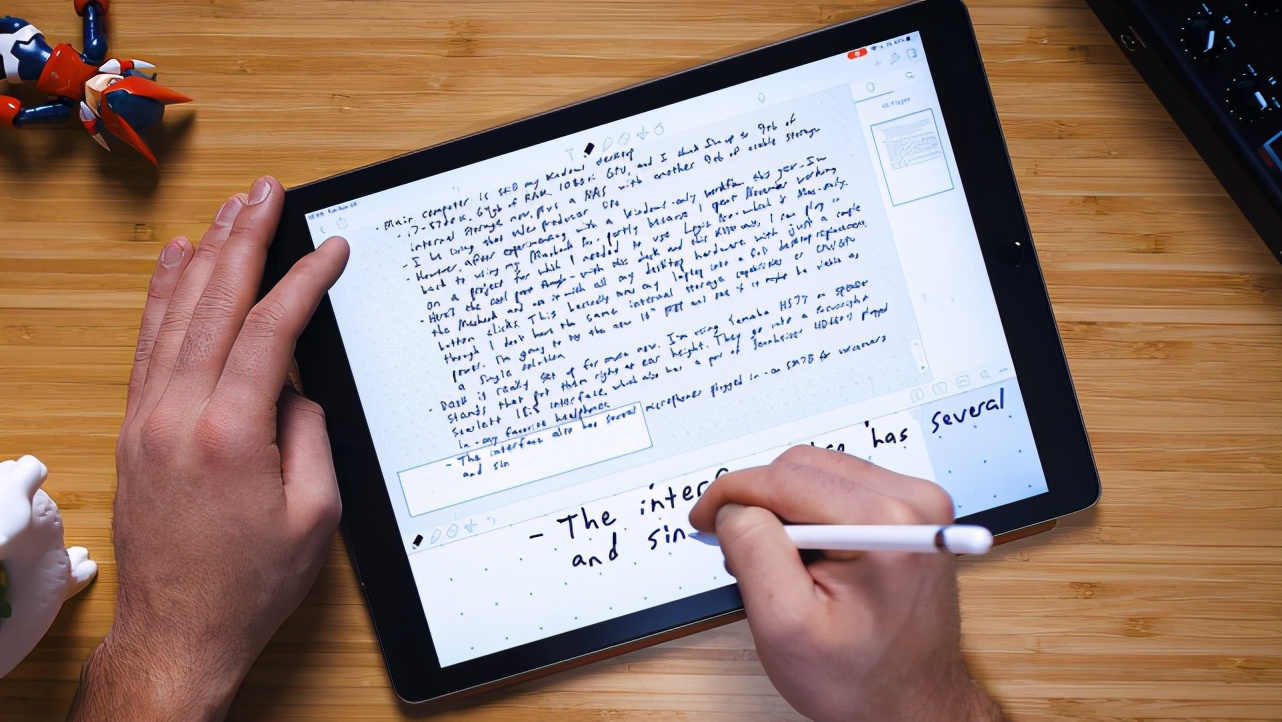 - Main computer is still my Kaduwi desktop
- i7-5820K, 64gb of RAM, 1080ti GPU, and I
internal storage now, plus a NAS with another 9tb of usable storage
- I
However, after experimenting with a Windows-only workflow this year, I'm
back to using my MacBook Pro, partly because I spent November working
on a project for which I needed to use Logic Pro
- Here's the cool part though - with this desk and this
the MacBook and use it with all my desktop hardware with just a couple
button clicks. This basically turns any laptop into a full desktop replacement,
though I don't have the same internal storage capabilities or CPU/GPU
power. I'm going to try the new 16" MBP and see if it might be viable as
a single solution
- Desk is really set up for music now. I'm using Yamaha HS7s on speaker
stands that put them right at ear height. They go into a Focusrite
Scarlett 18i8 interface, which also has a pair of Sennheiser HD650s plugged
in - my favorite headphones
- The interface also has several microphones plugged in - an SM7B for voiceovers
and sin
- The interf has several
and sin